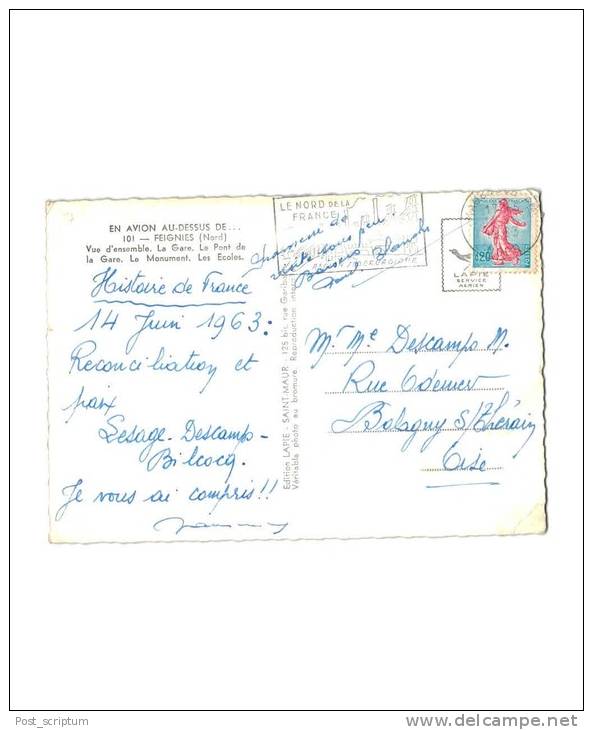 EN AVION AU-DESSUS DE...
101 — FEIGNIES (Nord)
Vue d'ensemble. La Gare. Le Pont de
la Gare. Le Monument. Les Ecoles.
Histoire de France
14 Juin 1963:
Reconciliation et
paix
Lesage-Descamps-
Bilcocq.
Je vous ai compris!!
Edition LAPIE - SAINT-MAUR - 125 bis, rue
Véritable photo au bromure. Reproduction
LE NORD DE LA
FRANCE
de
visite sous peu
Baisers
LAPIE
SERVICE
AERIEN
0,20
Mr Me Descamps M.
Rue
Balagny S/Thérain
Oise
Post_scriptum
delcampe.net